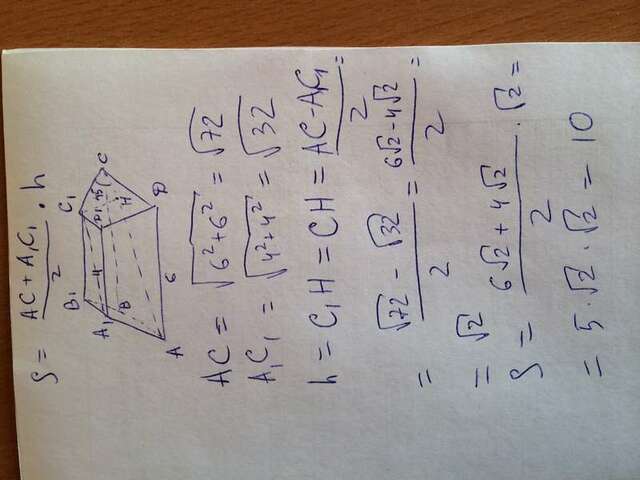 S = (AC + A₁C₁)/2 · h
B₁ C₁
A₁ 4 D₁ 45° C
B H
A 6 D
AC = √(6² + 6²) = √72
A₁C₁ = √(4² + 4²) = √32
h = C₁H = CH = (AC - A₁C₁)/2 =
= (√72 - √32)/2 = (6√2 - 4√2)/2 =
= √2
S = (6√2 + 4√2)/2 · √2 =
= 5 · √2 · √2 = 10